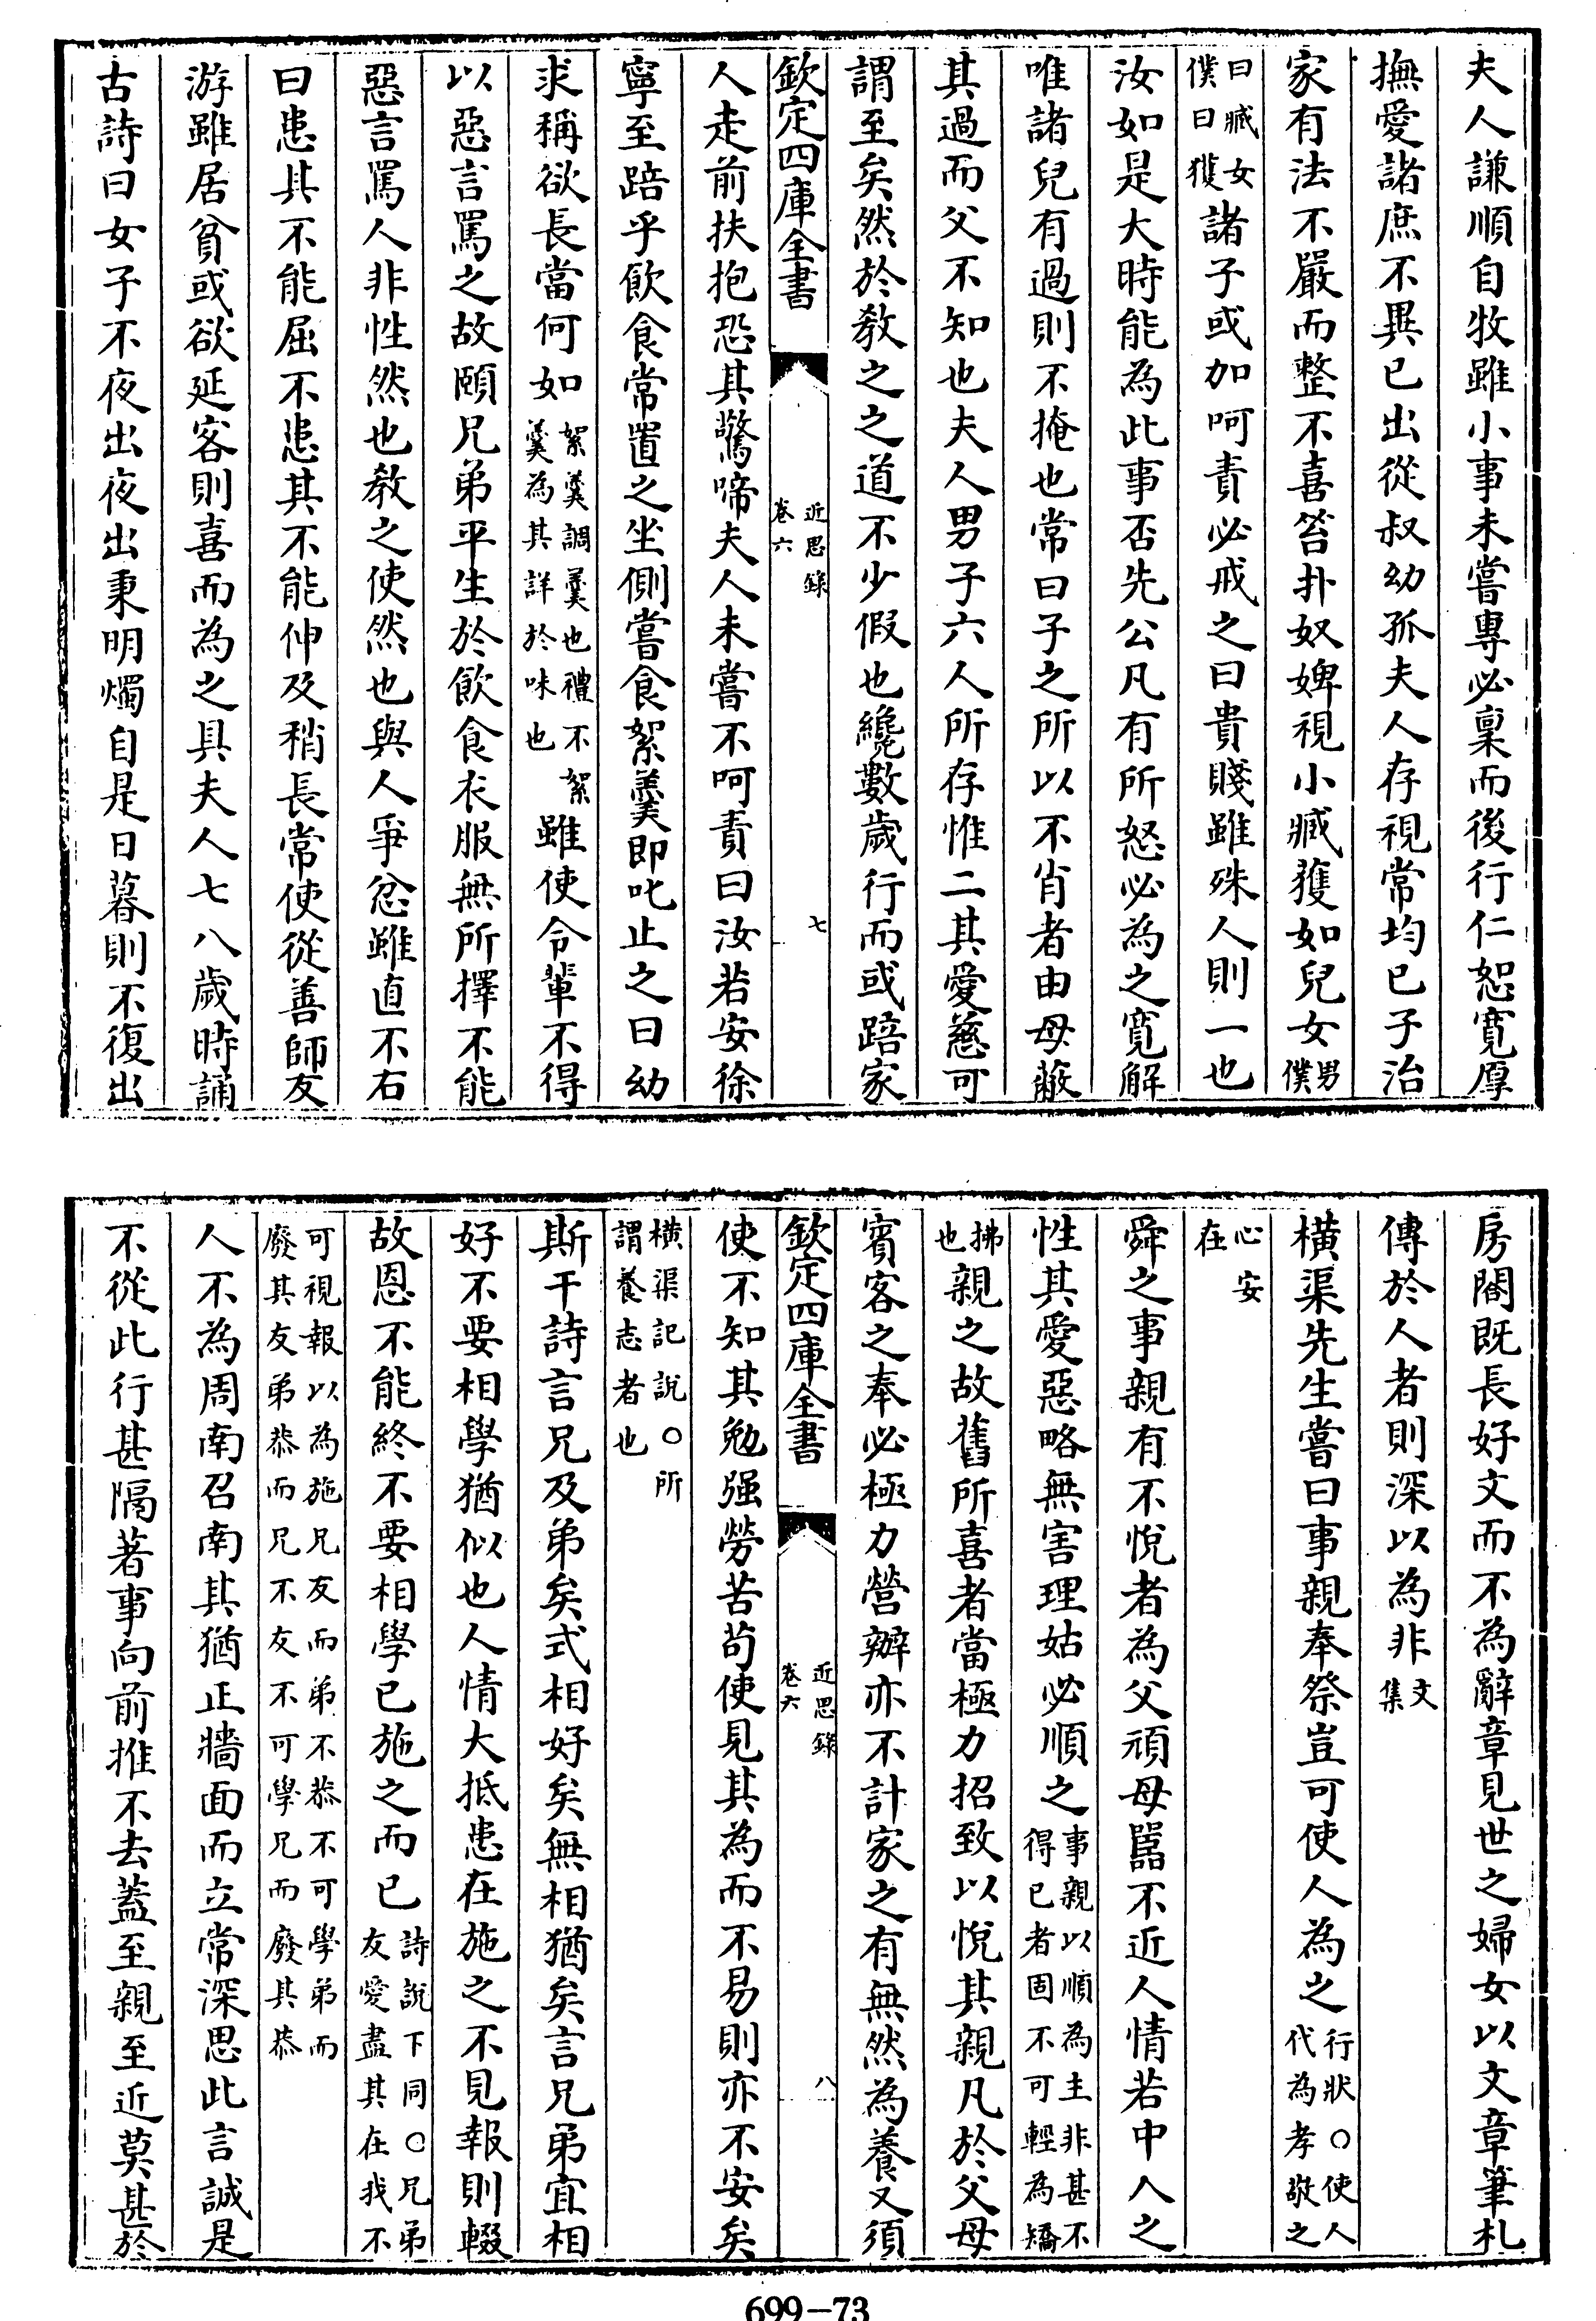 夫人謙順自牧雖小事未嘗專必稟而後行仁恕寛厚
撫愛諸庶不異已出從叔幼孤夫人存視常均已子治
家有法不嚴而整不喜笞扑奴婢視小臧獲如兒女男僕
曰臧女僕曰獲諸子或加呵責必戒之曰貴賤雖殊人則一也
汝如是大時能為此事否先公凡有所怒必為之寛解
唯諸兒有過則不掩也常曰子之所以不肖者由母蔽
其過而父不知也夫人男子六人所存惟二其愛慈可
謂至矣然於教之之道不少假也纔數歲行而或踣家
欽定四庫全書 近思錄 卷六 七
人走前扶抱恐其驚啼夫人未嘗不呵責曰汝若安徐
寧至踣乎飲食常置之坐側嘗食絮羹即叱止之曰幼
求稱欲長當何如絮羹調羹也禮不絮羹為其詳於味也雖使令輩不得
以惡言罵之故頤兄弟平生於飲食衣服無所擇不能
惡言罵人非性然也教之使然也與人爭忿雖直不右
曰患其不能屈不患其不能伸及稍長常使從善師友
游雖居貧或欲延客則喜而為之具夫人七八歲時誦
古詩曰女子不夜出夜出秉明燭自是日暮則不復出
房閤既長好文而不為辭章見世之婦女以文章筆札
傳於人者則深以為非文集
橫渠先生嘗曰事親奉祭豈可使人為之行狀○使人代為孝敬之
心安在
舜之事親有不悅者為父頑母嚚不近人情若中人之
性其愛惡略無害理姑必順之事親以順為主非甚不得已者固不可輕為矯
拂也親之故舊所喜者當極力招致以悅其親凡於父母
賓客之奉必極力營辦亦不計家之有無然為養又須
欽定四庫全書 近思錄 卷六 八
使不知其勉强勞苦苟使見其為而不易則亦不安矣
橫渠記說○所謂養志者也
斯干詩言兄及弟矣式相好矣無相猶矣言兄弟宜相
好不要相學猶似也人情大抵患在施之不見報則輟
故恩不能終不要相學已施之而已詩說下同○兄弟友愛盡其在我不
可視報以為施兄友而弟不恭不可學弟而廢其友弟恭而兄不友不可學兄而廢其恭
人不為周南召南其猶正牆面而立常深思此言誠是
不從此行甚隔著事向前推不去蓋至親至近莫甚於
699-73